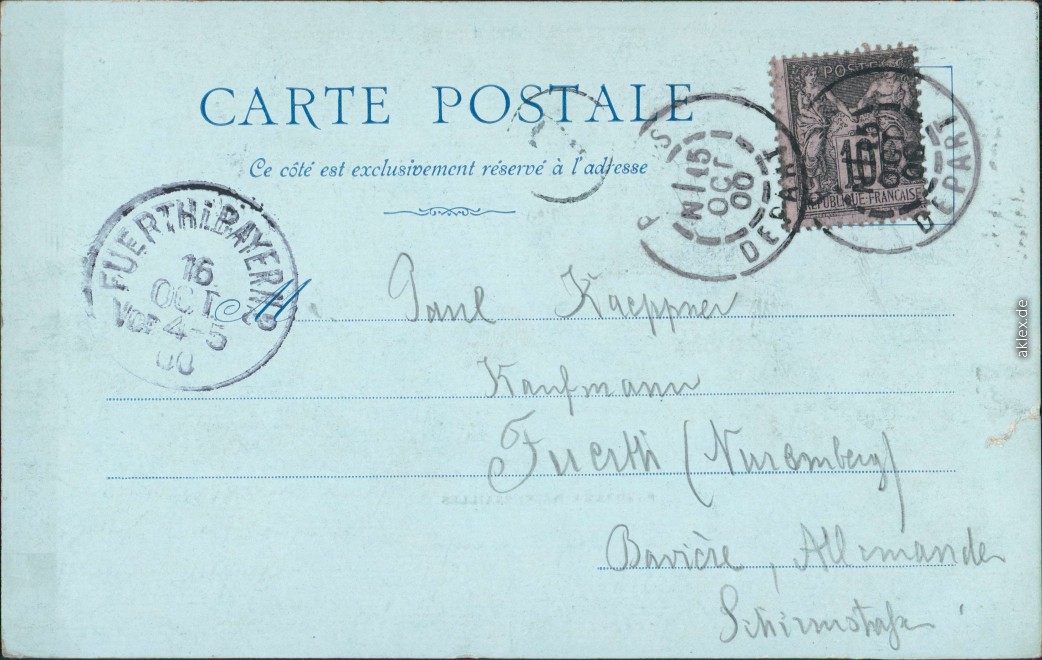 CARTE POSTALE
Ce côté est exclusivement réservé à l'adresse
POSTE
10
REPUBLIQUE FRANÇAISE
15
OCT
00
DEPART
15
OCT
00
DEPART
FUERTH i. BAYERN
16.
OCT
VOR 4-5
00
M
Paul Kaeppner
Kaufmann
Fuerth (Nuremberg)
Bavière, Allemande
aklex.de